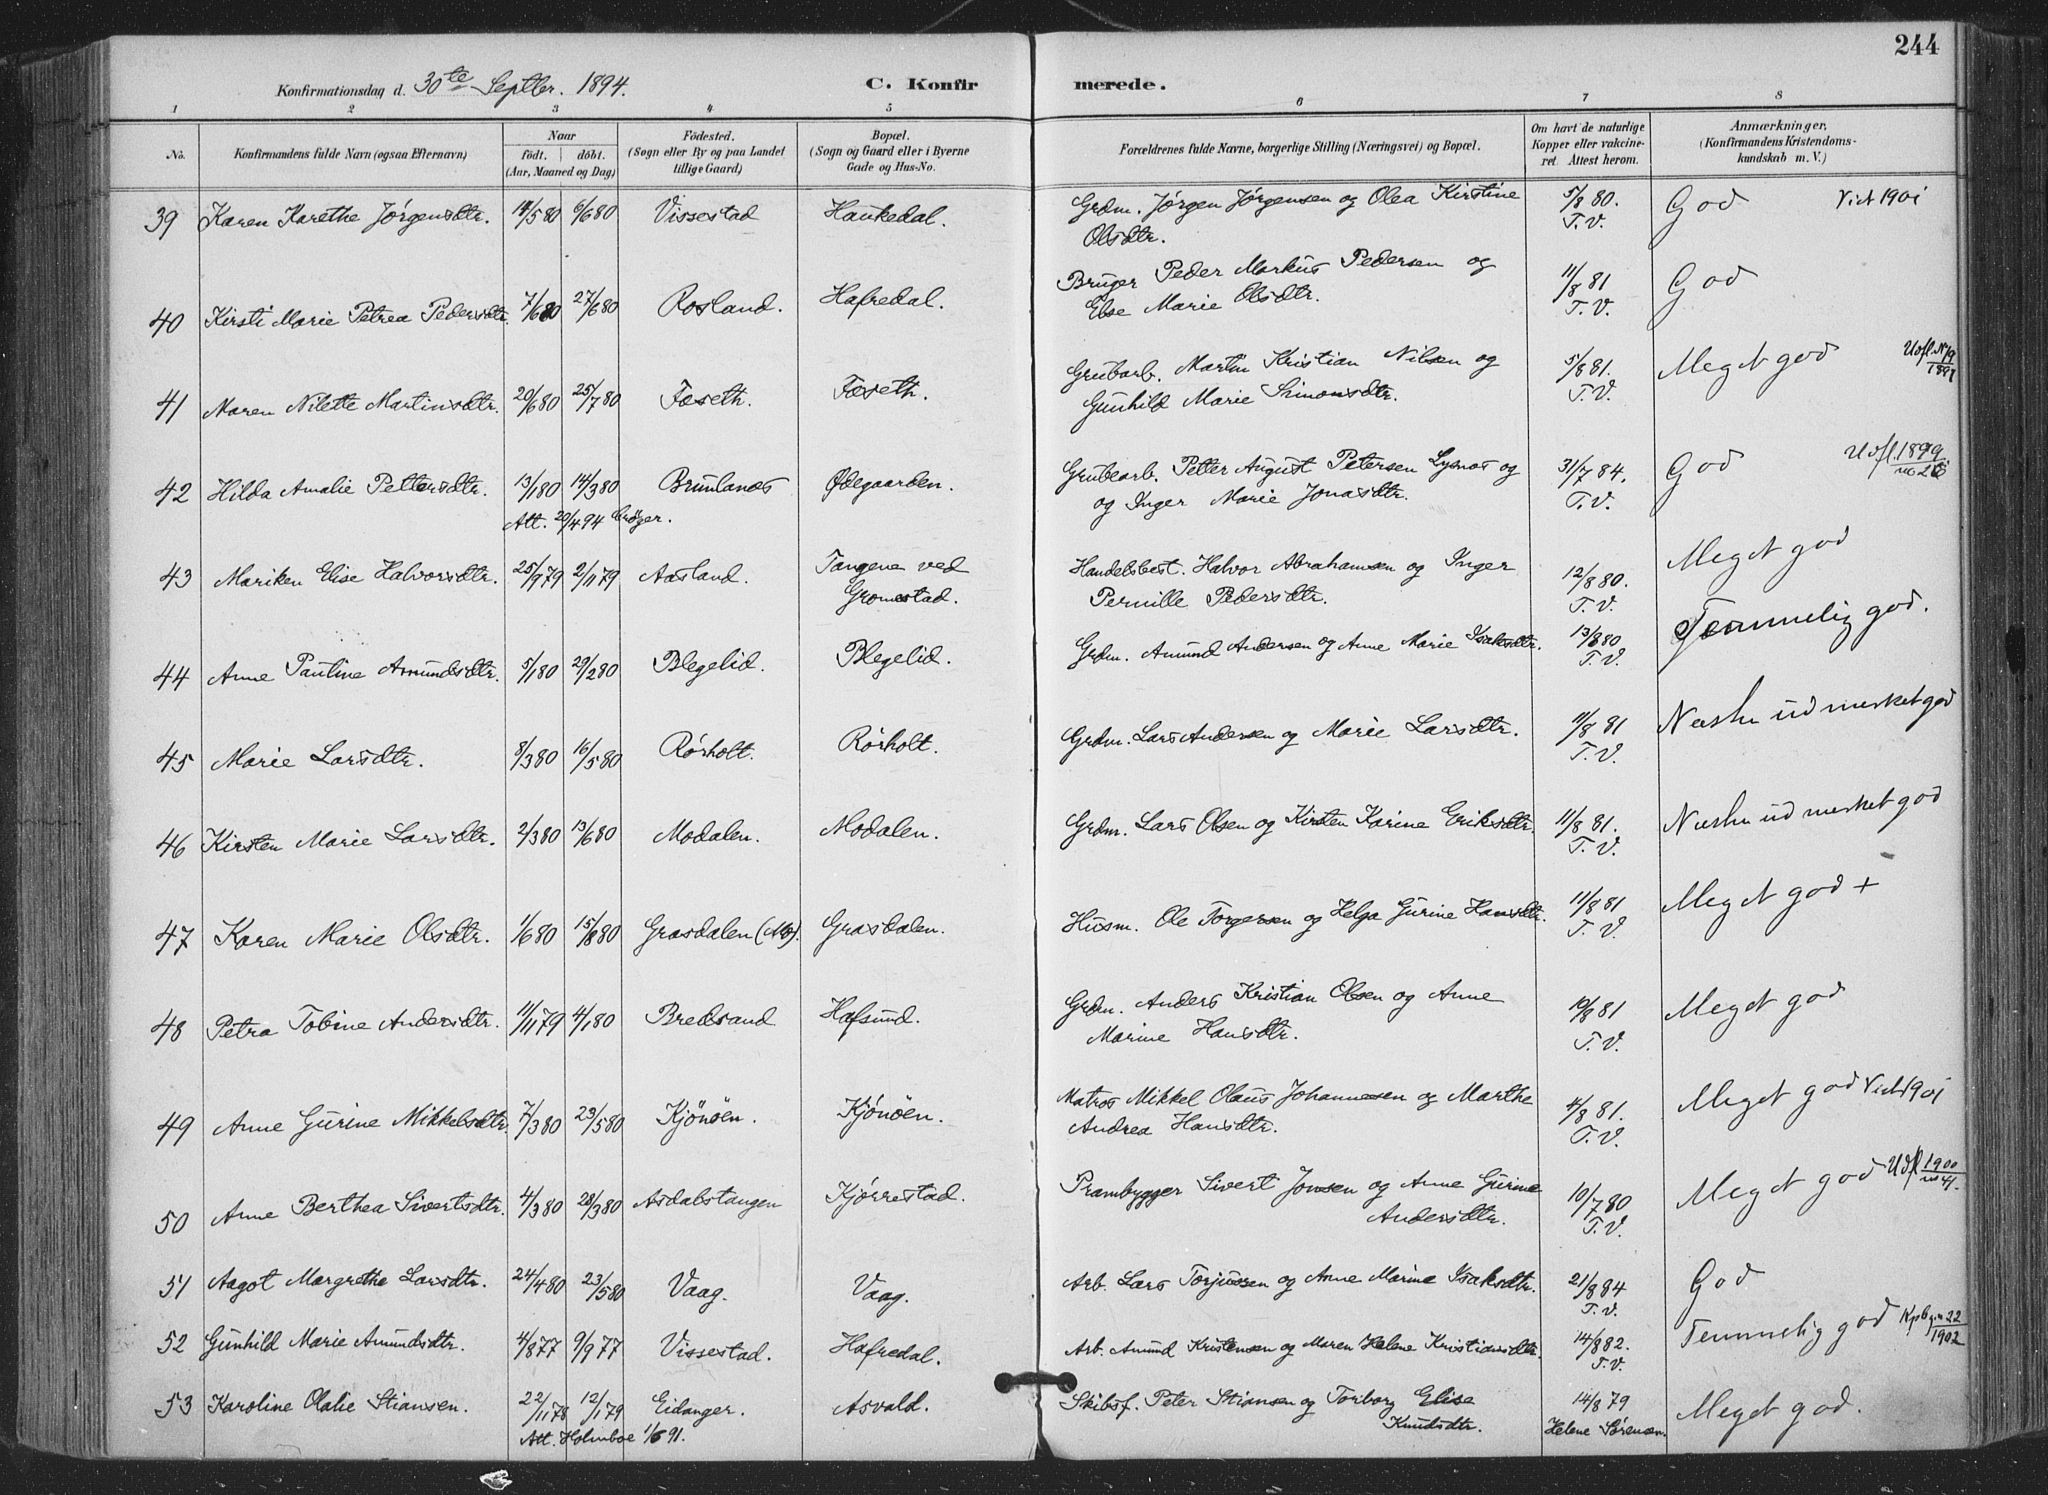 244
Konfirmationsdag d. 30te Septbr. 1894. C. Konfirmerede.
1 2 3 4 5 6 7 8
No. Konfirmandens fulde Navn (ogsaa Efternavn) Naar født. døbt. (Aar, Maaned og Dag) Fødested. (Sogn eller By og paa Landet tillige Gaard) Bopæl. (Sogn og Gaard eller i Byerne Gade og Hus-No. Forældrenes fulde Navne, borgerlige Stilling (Næringsvei) og Bopæl. Om havt de naturlige Kopper eller vakcineret. Attest herom. Anmærkninger, (Konfirmandens Kristendomskundskab m. V.)
39 Karen Karethe Jørgensdtr. 14/5 80 6/6 80 Vissestad Haukedal. Grdm. Jørgen Jørgensen og Olea Kirstine Olsdtr. 5/8 80. T.V. God Vict 1901
40 Kirsti Marie Petrea Pedersdtr. 7/6 80 27/6 80 Rosland. Hafredal. Bruger Peder Markus Pedersen og Else Marie Olsdtr. 11/8 81 T.V. God
41 Maren Nilette Martinsdtr. 20/6 80 25/7 80 Foseth. Foseth. Grubarb. Martin Kristian Nilsen og Gunhild Marie Simonsdtr. 5/8 81. T.V. Meget god
42 Hilda Amalie Pettersdtr. 13/1 80 14/3 80 Brunlanes Ødegaarden. Grubearb. Petter August Petersen Lysnos og og Inger Marie Jonasdtr. 31/7 84. T.V. God Udfl. 1899
Att. 20/4 94 Crøger.
43 Mariken Elise Halvorsdtr. 25/9 79 2/11 79 Aasland. Tangene ved Gromstad. Handelsbest. Halvor Abrahamsen og Inger Pernille Pedersdtr. 12/8 80. T.V. Meget god
44 Anne Pauline Amundsdtr. 5/1 80 29/2 80 Blegelid. Blegelid. Grdm. Amund Andersen og Anne Marie Isaksdtr. 13/8 80 T.V. Temmelig god.
45 Marie Larsdtr. 8/3 80 16/5 80 Rørholt. Rørholt. Grdm. Lars Andersen og Marie Larsdtr. 11/8 81 T.V. Næsten udmerket god
46 Kirsten Marie Larsdtr. 2/3 80 13/6 80 Modalen. Modalen. Grdm. Lars Olsen og Kirsten Karine Eriksdtr. 11/8 81. T.V. Næsten udmerket god
47 Karen Marie Olsdtr. 1/6 80 15/8 80 Grasdalen Grasdalen. Husm. Ole Torgersen og Helga Gurine Hansdtr. 11/8 81 T.V. Meget god +
48 Petra Tobine Andersdtr. 11/11 79 4/1 80 Bredsand Hafsund. Grdm. Anders Kristian Olsen og Anne Marine Hansdtr. 19/8 81 T.V. Meget god
49 Anne Gurine Mikkelsdtr. 7/3 80 23/5 80 Kjønøen. Kjønøen. Matros Mikkel Olaus Johannesen og Marthe Andrea Hansdtr. 4/8 81. T.V. Meget god Vict 1901
50 Anne Berthea Sivertsdtr. 4/3 80 28/3 80 Asdalstangen Kjørrestad. Prambygger Sivert Jonsen og Anne Gurine Andersdtr. 10/7 80 T.V. Meget god Udfl 1900 no 41.
51 Aagot Margrethe Larsdtr. 24/4 80 23/5 80 Vaag. Vaag. Arb. Lars Torjussen og Anne Marine Isaksdtr. 21/8 84 T.V. God
52 Gunhild Marie Amundsdtr. 4/8 77 9/9 77 Vissestad. Hafredal. Arb. Amund Kristensen og Maren Helene Kristiansdtr. 14/8 82. T.V. Temmelig god 22 1902
53 Karoline Olalie Stiansen. 22/11 78 12/1 79 Eidanger. Asvald. Skibsf. Peter Stiansen og Torborg Elise Knudsdtr. 14/8 79 Helene Sørensen. Meget god.
Att. Holmboe 1/6 91.